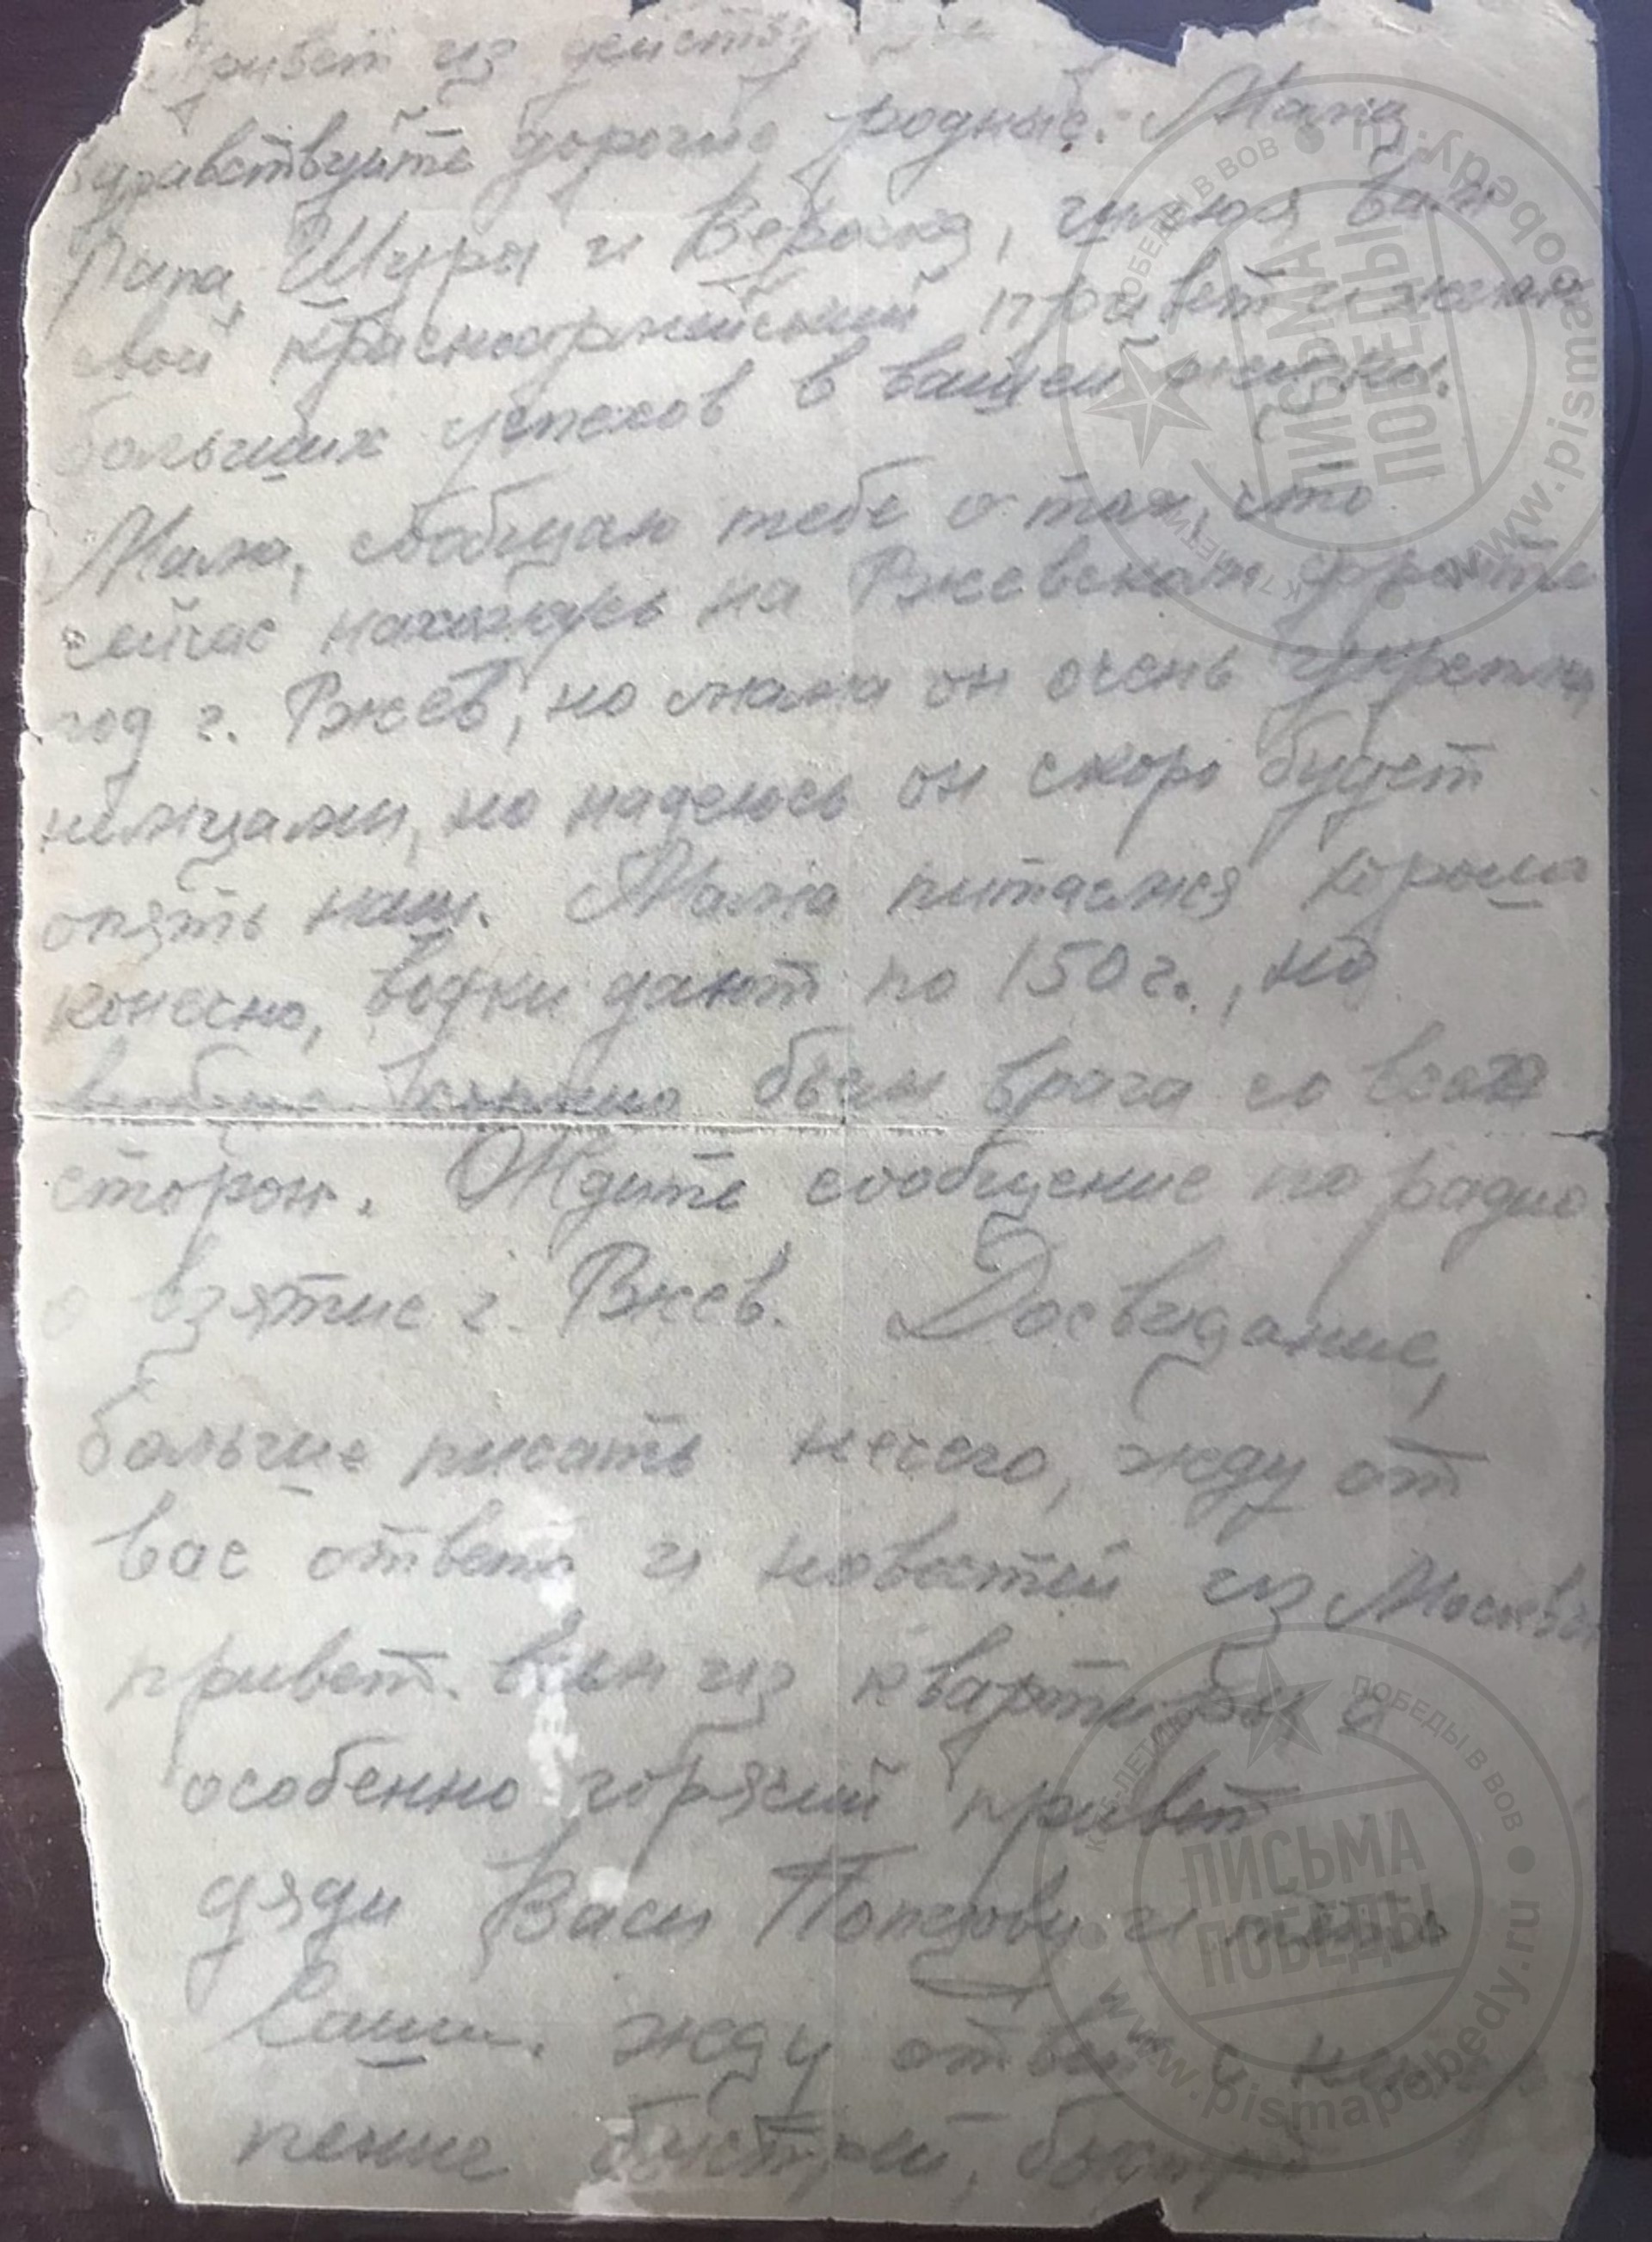 Привет из
Здравствуйте дорогие родные. Мама,
Папа, Шура и Верочка, шлю я вам
свой красноармейский привет и желаю
больших успехов в вашей жизни.
Мама, сообщаю тебе о том, что
сейчас нахожусь на Ржевском фронте
под г. Ржев, но мама он очень укреплен
немцами, но надеюсь он скоро будет
опять наш. Мама питаемся хорошо
конечно, водки дают по 150 г., но
бьем врага со всех
сторон. Ждите сообщение по радио
о взятие г. Ржев. Досвидание,
больше писать нечего, жду от
вас ответа и новостей из Москвы
привет всем из квартиры и
особенно горячий привет
дяди Васи и тети
Саши. Жду ответ с не
пение быстрей, быстрей
ПИСЬМА
ПОБЕДЫ
www.pismapobedy.ru
ПОБЕДЫ В ВОВ
ПИСЬМА
ПОБЕДЫ
www.pismapobedy.ru
ПОБЕДЫ В ВОВ